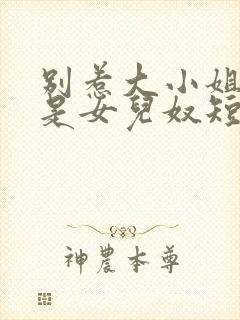 別惹大小姐
是女兒奴短
神農本尊